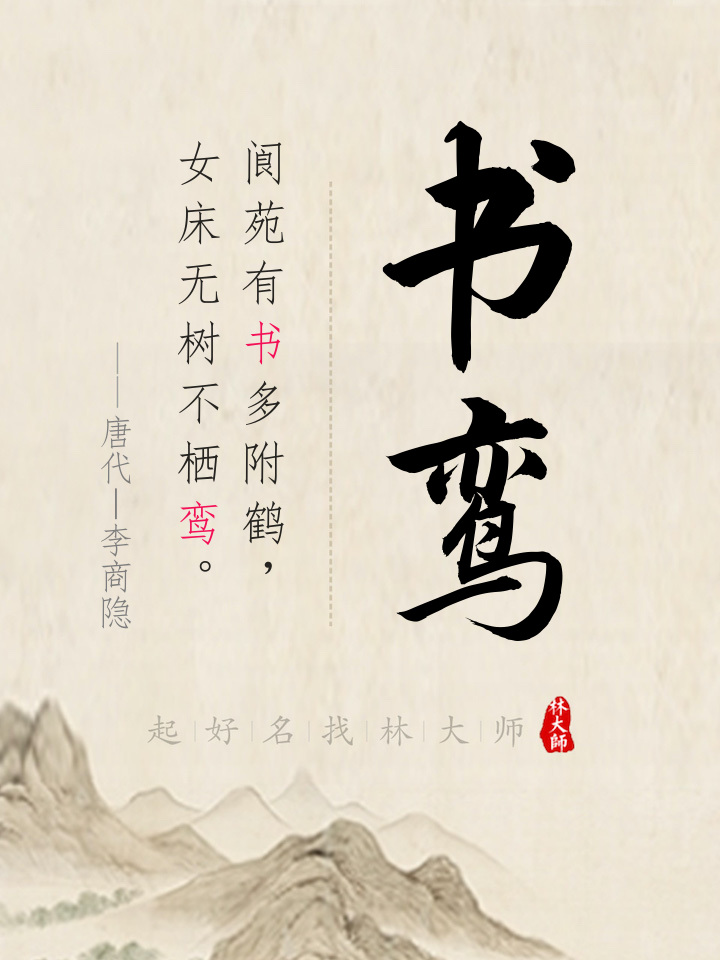 书鸾
阆苑有书多附鹤，
女床无树不栖鸾。
——唐代—李商隐
起|好|名|找|林|大|师
林大師